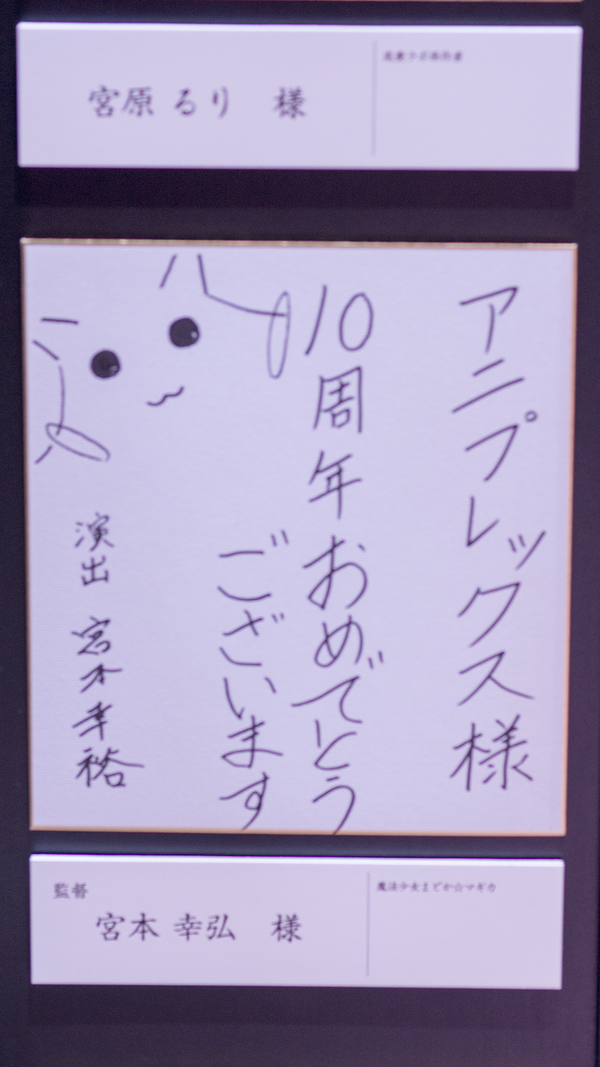 宮原 るり 様
アニプレックス様
10周年おめでとう
ございます
演出 宮本幸裕
監督
宮本 幸弘 様
魔法少女まどか☆マギカ